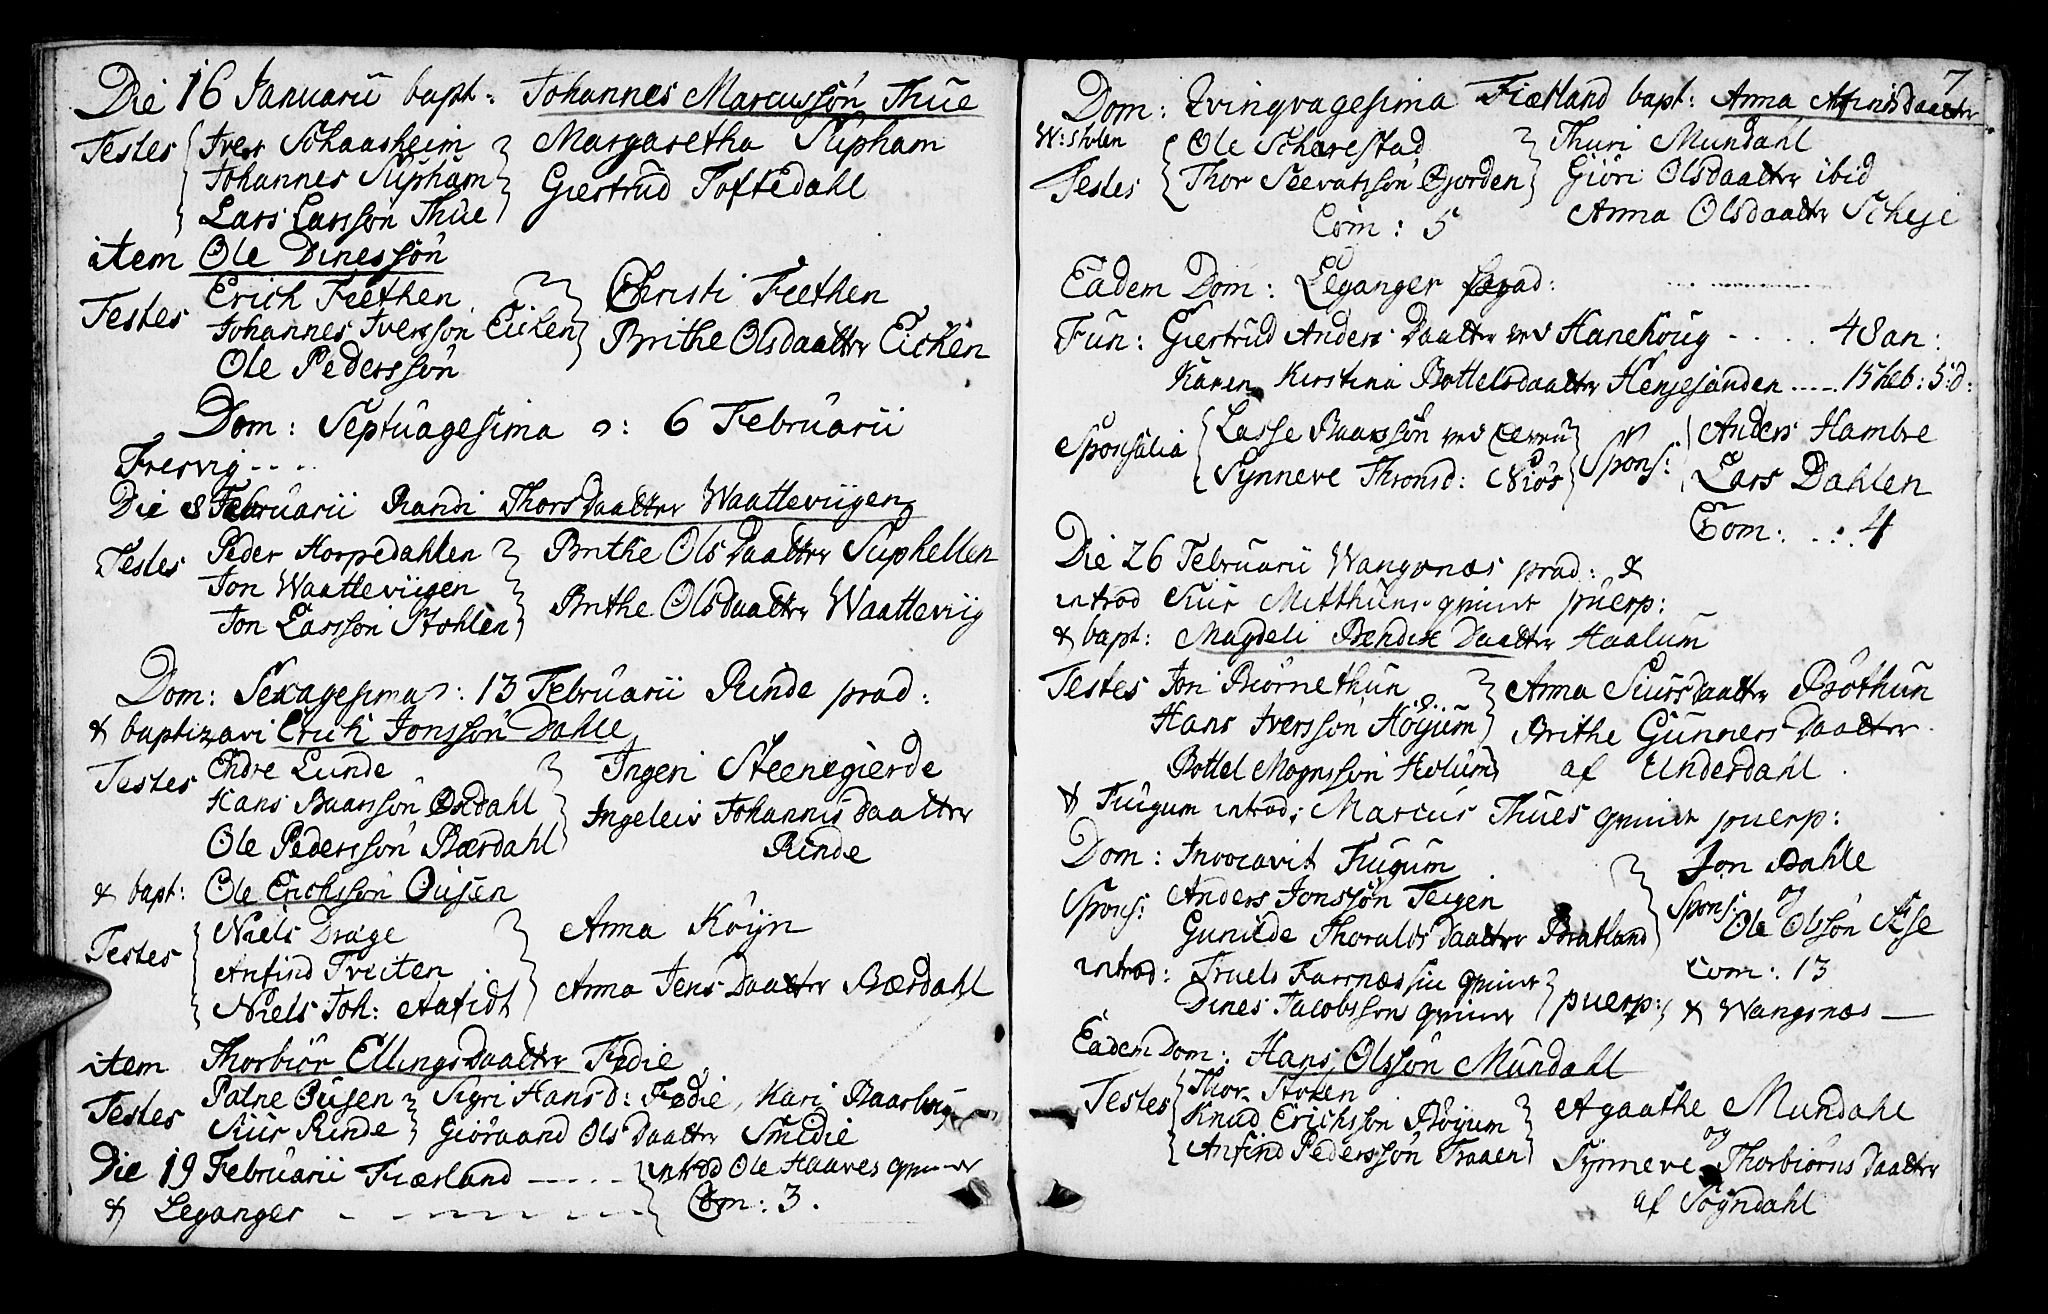 Die 16 Januarii bapt: Johannes Marcussön Thue
Testes Iver Schaasheim Margaretha Supham
Johannes Supham Giertrud Toftedahl
Lars Larssön Thue
item Ole Dinessön
Testes Erich Feethen Christi Feethen
Johannes Iverssön Eichen Brithe Olsdaatter Eichen
Ole Pederssön
Dom: Septuagesima ɔ: 6 Februarii
Fresvig - - - -
Die 8 Februarii Randi Thorsdaatter Waatteviigen
Testes Peder Horpedahlen Brithe Olsdaatter Suphellen
Jon Waatteviigen
Jon Lassön Stohlen Brithe Olsdaatter Waatteviig
Dom: Sexagesima ɔ: 13 Februarii Rinde præd:
& baptizavi Erich Jonssön Dahle
Testes Endre Lunde Ingeri Steenegierde
Hans Baarssön Esdahl Ingeleiv Johannisdaatter
Ole Pederssön Bærdahl Rinde
& bapt: Ole Erichssön Ouisen
Testes Niels Drage Anna Köijn
Anfind Tveiten
Niels Joh: Aafedt Anna Jensdaatter Bærdahl
item Thorbiör Ellingsdaatter Fedie
Testes Palne Ouisen Sigri Hansd: Fedie, Kari
Siur Rinde Giöraand Olsdaatter Smidie
Die 19 Februarii Fiærland - - - - - introd Ole Haaves qvinde
& Leganger - - - - - - - Com: 3.
7
Dom: Qvinqvagesima Fiærland bapt: Anna
W: Stolen Ole Scharestad Thuri Mundahl
Testes Thor Seevatssön Giöri Olsdaatter ibid
Com: 5 Anna Olsdaatter Scheje
Eadem Dom: Leganger
Fun: Giertrud Andersdaatter ved Hanehoug - - - - 48 an:
Karen Kirstina Bottelsdaatter Henjesanden - - - 15 heb: 5: d:
Sponsalia Lasse Baarssön Spons: Anders Hambre
Synneve Thronsd: Niös Lars Dahlen
Com: . . . 4
Die 26 Februarii Wangsnæs præd: &
introd Siur Mitthuns qvinde puerp:
& bapt: Magdeli Bendixdaatter Haalum
Testes Jon Biörnethun Anna Siursdaatter Böthun
Hans Iverssön Höyum Brithe Gunnersdaatter
Bottel Mognssön Holum af Underdahl.
& Fuigum introd: Marcus Thues qvinde puerp:
Dom: Invocavit Fuigum Jon Dahle
Spons: Anders Jonssön Teigen Spons: og
Gunilde Thoraldsdaatter Bratland Ole Olsön Ase
introd: Truels qvinde Com: 13
Dines Jacobssöns qvinde puerp: & Wangsnæs —
Eadem Dom: Hans Olssön Mundahl
Testes Thor Agaathe Mundahl
Knud Erichssön Böyum og
Anfind Pederssön Traaen Synneve Thorbiörnsdaatter
af Sogndahl